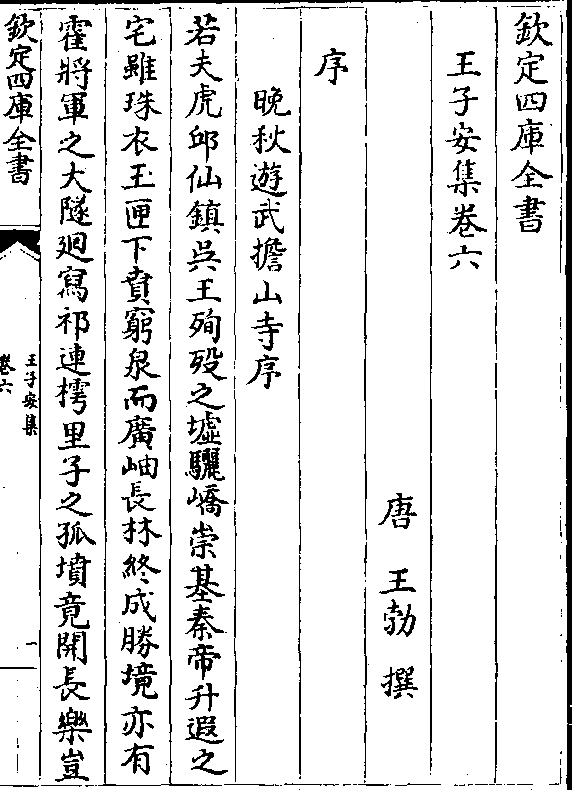 欽定四庫全書
王子安集卷六
唐 王勃 撰
序
晚秋遊武擔山寺序
若夫虎邱仙鎮吳王殉歿之墟驪嶠崇基秦帝升遐之
宅雖珠衣玉匣下賁窮泉而廣岫長林終成勝境亦有
霍將軍之大隧廻寫祁連樗里子之孤墳竟開長樂豈
欽定四庫全書
王子安集
卷六
一